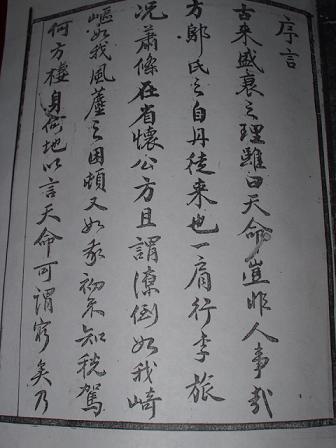 序言
古来盛衰之理雖曰天命豈非人事哉
方鄔氏之自丹徒来也一肩行李旅
况蕭條在省懷公方且謂潦倒如我崎
嶇如我風塵之困頓又如我初不知税駕
何方棲身何地以言天命可謂窮矣乃